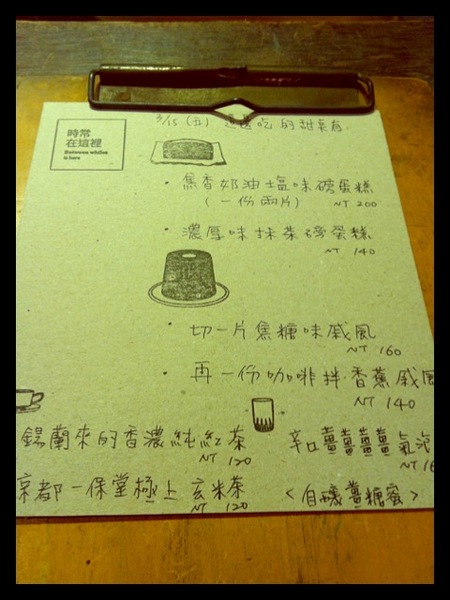 時常
在這裡
Between whiles
is here
3/15 (五) 這邊吃的甜菜有
焦香奶油塩味磅蛋糕
(一份兩片) NT 200
濃厚味抹茶磅蛋糕
NT 140
切一片焦糖味戚風
NT 160
再一份咖啡拌香蕉戚風
NT 140
錫蘭來的香濃純紅茶
NT 120
京都一保堂極上玄米茶
NT 120
辛口薑薑薑薑氣泡
NT 16
<自磯薑糖蜜>